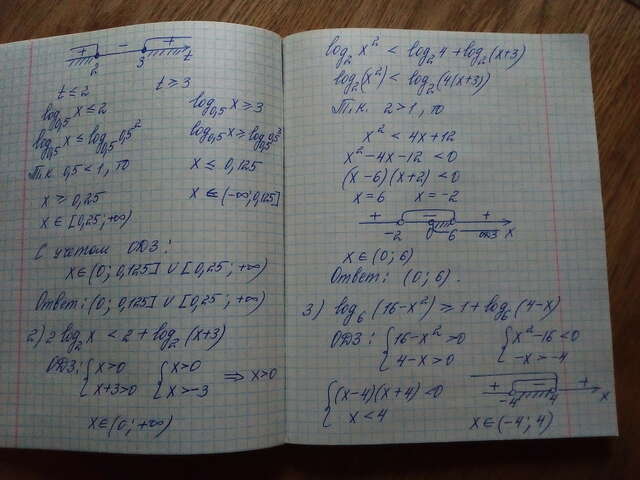 + - +
2 3 t
t ≤ 2 t ≥ 3
log₀,₅ x ≤ 2 log₀,₅ x ≥ 3
log₀,₅ x ≤ log₀,₅ 0,5² log₀,₅ x ≥ log₀,₅ 0,5³
Т.к. 0,5 < 1, то x ≤ 0,125
x ≥ 0,25 x ∈ (-∞; 0,125]
x ∈ [0,25; +∞)
С учетом ОДЗ:
x ∈ (0; 0,125] ∪ [0,25; +∞)
Ответ: (0; 0,125] ∪ [0,25; +∞)
2) 2 log₂ x < 2 + log₂ (x+3)
ОДЗ: { x > 0 { x > 0 ⇒ x > 0
x+3 > 0 x > -3
x ∈ (0; +∞)
log₂ x² < log₂ 4 + log₂ (x+3)
log₂ (x²) < log₂ (4(x+3))
Т.к. 2 > 1, то
x² < 4x + 12
x² - 4x - 12 < 0
(x-6)(x+2) < 0
x = 6 x = -2
+ - +
-2 0 6 ОДЗ x
x ∈ (0; 6)
Ответ: (0; 6).
3) log₆ (16-x²) ≥ 1 + log₆ (4-x)
ОДЗ: { 16-x² > 0 { x² - 16 < 0
4-x > 0 -x > -4
{ (x-4)(x+4) < 0 + - +
x < 4 -4 4 x
x ∈ (-4; 4)